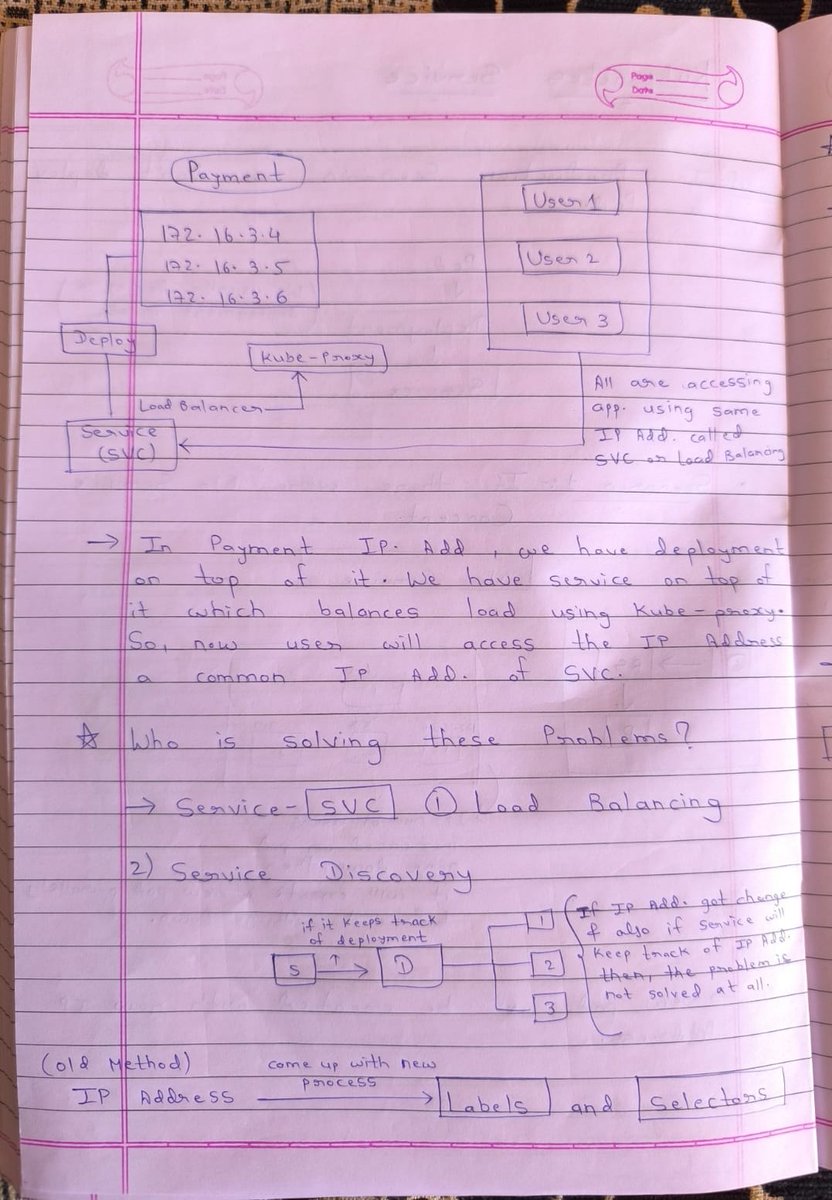 Page
Date
Payment
172. 16. 3. 4
172. 16. 3. 5
172. 16. 3. 6
User 1
User 2
User 3
Deploy
Kube-Proxy
Load Balancer
Service
(SVC)
All are accessing
app. using same
IP Add. called
SVC or Load Balancing
→ In Payment IP. Add, we have deployment
on top of it. We have service on top of
it which balances load using Kube-proxy.
So, now user will access the IP Address
a common IP Add. of SVC.
☆ Who is solving these Problems?
→ Service- SVC ① Load Balancing
2) Service Discovery
if it keeps track
of deployment
S
D
1
2
3
If IP Add. got change
& also if Service will
keep track of IP Add.
then, the problem is
not solved at all.
(old Method)
come up with new
process
IP Address → Labels and Selectors